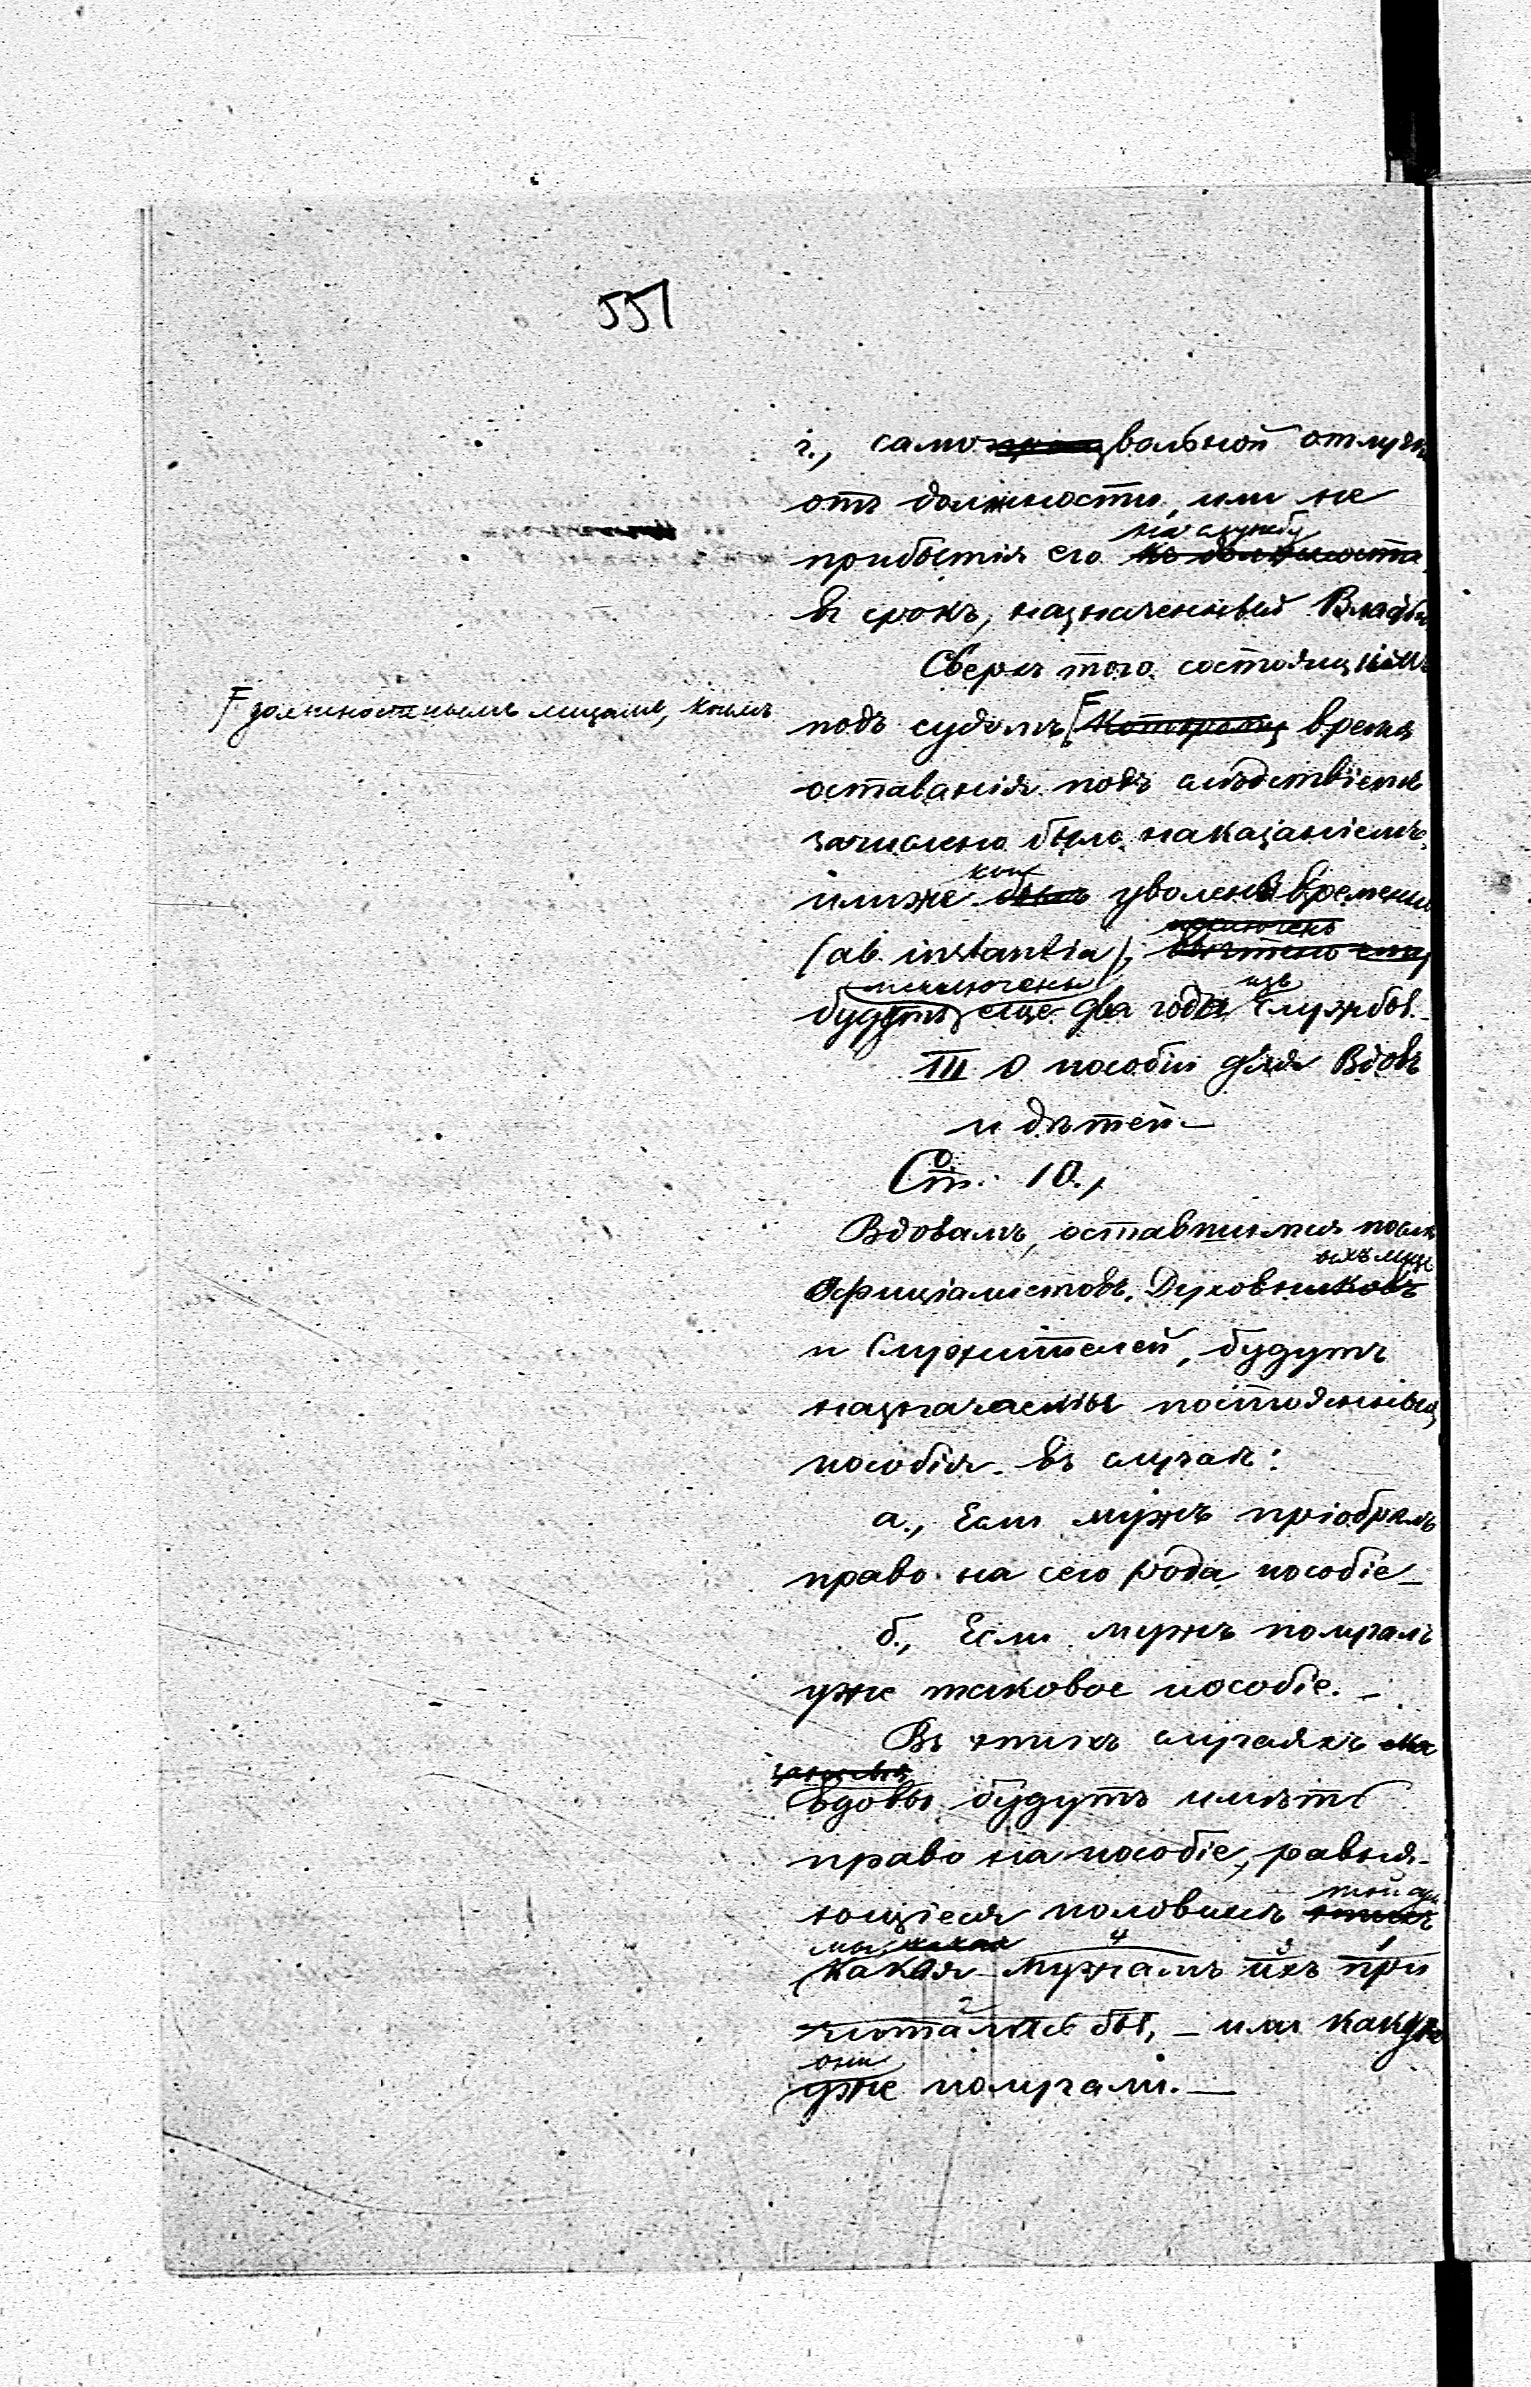 551
г., самовольной отлучк
отъ должности, или не
на службу
прибытія его къ должности
въ срокъ, назначенный Властью
Сверхъ того состоящимъ
F должностнымъ лицамъ, коимъ
подъ судомъ F которому время
оставанія подъ слѣдствіемъ
зачислено было наказаніемъ,
кои
или же былъ уволены временно
исключенъ
(ab instantia),
исключены изъ
будутъ еще два года службы.
III О пособіи для Вдовъ
и дѣтей.
Ст. 10.,
Вдовамъ, оставшимся послѣ
ныхъ лицъ
Офиціалистовъ, Духовниковъ
и Служителей, будутъ
назначаемы постоянныя
пособія въ случаѣ:
а., Если мужъ пріобрѣлъ
право на сего рода пособіе_
б., Если мужъ получалъ
уже таковое пособіе._
Въ этихъ случаяхъ
вдовы будутъ имѣть
право на пособіе, равня-
той сум
ющееся половинѣ этихъ
мы какая
4 3 1
какая мужьямъ ихъ при
2
читалась бы, _ или какую
они
уже получали._